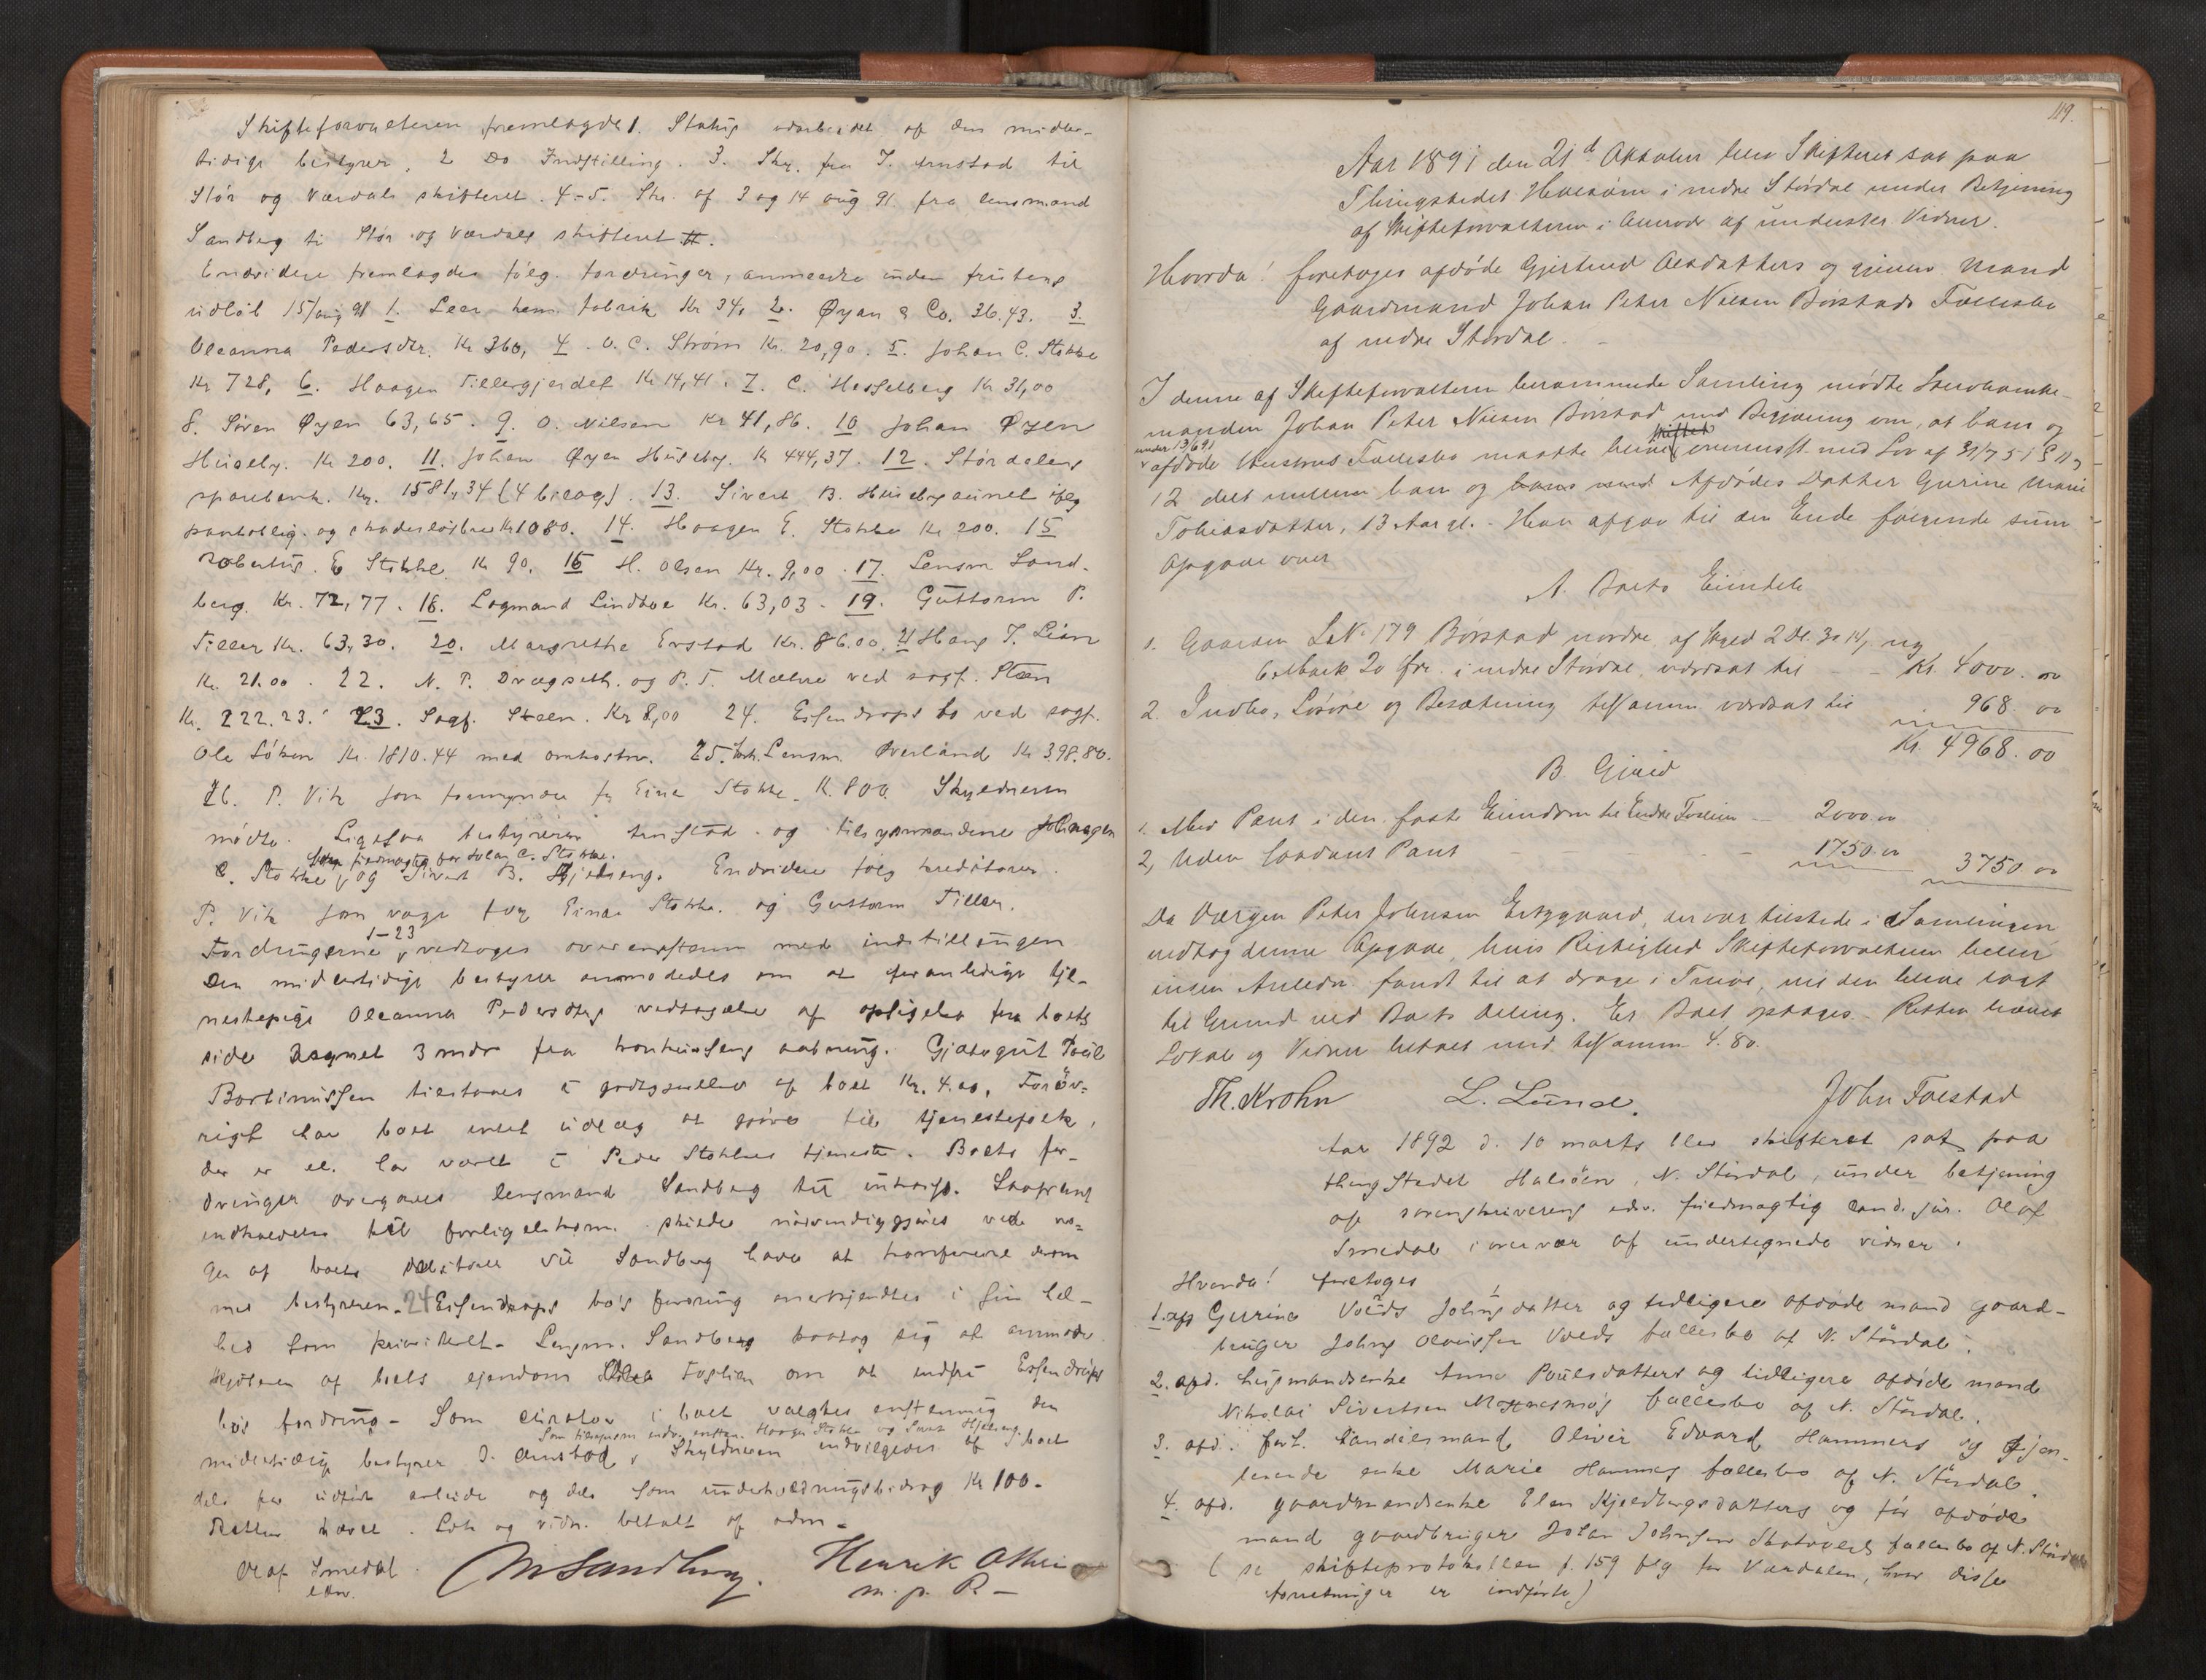 Skifteforvalteren fremlagde 1. Status udarbeidet af den midler-
tidige bestyrer, 2 Do Indstilling. 3. Skr. fra J. Arnstad til
Stør og Værdals skifteret. 4-5. Skr. af 3 og 14 aug 91. fra lensmand
Sandberg til Stør og Værdals skifteret.
Endvidere fremlagdes følg. fordringer, anmeldte inden fristens
udløb 15/aug 91 1. Leer kem. fabrik Kr 34, 2. Øyan & Co. 36.43. 3.
Oleanna Pedersdtr. Kr 360, 4. O. C. Strøm Kr. 20,90. 5. Johan C. Stokke
Kr 728, 6. Haagen Tillergjerdet Kr 14,41. 7. C. Hesselberg Kr 31,00
8. Sören Øyen 63,65. 9. O. Nilsen Kr 41,86. 10 Johan Øyen
Huseby. Kr 200. 11. Johan Øyen Huseby. Kr 444,37. 12. Stördalens
sparebank. Kr. 1581,34 (4 bilag). 13. Sivert B. Husebyaunet ifølg
pantoblig. og skadesløsbrev Kr 1080. 14. Haagen E. Stokke Kr 200. 15
Robertus E Stokke Kr 90. 16 H. Olsen Kr. 9,00. 17. Lensm Sand-
berg. Kr. 72,77. 18. Lagmand Lindboe Kr. 63,03. 19. Guttorm P.
Tiller Kr. 63,30. 20. Margrethe Erstad Kr. 86.00. 21 Hans J. Lian
Kr. 21.00. 22. N. P. Dragseth. og P. T. Mæhre ved sagf. Steen
Kr. 222.23. 23. Sagf. Steen. Kr 8,00 24. Essendrops bo ved sagf.
Ole Löken Kr. 1810.44 med omkostn. 25. Lensm. Øverland Kr 398.80.
26. P. Vik som formynder for Einar Stokke. Kr. 800. Skyldneren
mødte. Ligesaa bestyreren Arnstad og tilsynsmændene Haagen
som fuldmægtig for Johan C. Stokke.
E. Stokke og Sivert B. Hjelseng. Endvidere følg kreditorer
P. Vik som værge for Einar Stokke. og Guttorm Tiller.
1-23
Fordringerne vedtoges overensstemm med indstillingen
Den midlertidige bestyrer anmodedes om at foranledige tje-
nestepige Oleanna Pedersdtrs vedtagelse af opsigelse fra boets
side regnet 3 mdr fra konkursens aabning. Gjætegut Paul
Bortinussen tilstodes i godtgjørelse af boet Kr. 4.00. Forøv-
rigt har boet intet udlæg at gjøre til tjenestefolk,
der er el. har været i Peder Stokkes tjeneste. Boets for-
dringer overgaves lensmand Sandberg til inkasso. Saafremt
indkaldelse til forligelseskom. skulde nødvendiggjøres ved no-
gen af boets debitorer vil Sandberg have at konferere derom
med bestyreren. 24 Essendrops bo's fordring anerkjendtes i sin hel-
hed som prioriteret. Lensm. Sandberg paatog sig at anmode
kjøberen af boets ejendom Foslien om at indfri Essendrops
bos fordring. Som curator i boet valgtes enstemmig den
Som tilsynsm endv. enstem. Haagen Stokke og Sivert Hjelseng.
midlertidig bestyrer J. Arnstad. Skyldneren indvilgedes af boet
dels for udført arbeide og dels som underholdningsbidrag Kr 100.
Retten hævet. Lok og vidn. betalt af adm.
Olaf Smedal
edsv.
M Sandberg.
Henrik
m. p. P.
119.
Aar 1891 den 21d Oktober blev Skifteret sat paa
Thingstedet Halsøen i nedre Stördal under Betjening
af Skifteforvalteren i Overvær af underskr. Vidner.
Hvorda! foretoges afdøde Gjertrud Olsdatters og gjenlev. Mand
Gaardmand Johan Peter Nilsen Börstads Fællesbo
af nedre Stördal.
I denne af Skifteforvalteren berammede Samling mødte Stervboenke-
manden Johan Peter Nilsen Börstad med Begjæring om, at hans og
under 13/6 91
afdøde Hustrus Fællesbo maatte blive skiftet overensst. med Lov af 31/7 51 § 11 og
12 delt mellem ham og Afdødes Datter Gurine Marie
Tobiasdatter, 13 Aar gl. Han afgav til den Ende følgende sum
Opgave over
A. Boets Eiendele
1. Gaarden LNo 179 Börstad nordre, af Skyld 2 Dl. 3 14, og
Ørlbæk 20 Øre i nedre Stördal, værdsat til - - Kr. 4000.00
2. Indbo, Løsøre og Besætning tilsamm. værdsat til 968 00
Kr. 4968.00
B. Gjæld
1. Med Pant i den faste Eiendom til Endre Foslien - 2000.00
2, Uden saadant Pant - - - 1750.00 3750.00
Da Værgen Peter Johnsen Ertzgaard, der var tilstede i Samlingen
vedtog denne Opgave, hvis Rigtighed Skifteforvalteren heller
ingen Anledn. fandt til at drage i Tvivl, vil den blive lagt
til Grund ved Boets Deling. Et Boet optages. Retten hævet
Lokale og Vidner betalt med tilsamm 4.80.
Th. Krohn L. Lund. John Folstad
Aar 1892 d. 10 marts blev skifteret sat paa
thingstedet Halsöen, N. Stördal, under betjening
af sorenskriverens edsv. fuldmægtig cand. jur. Olaf
Smedal i overvær af undertegnede vidner.
Hvorda! foretoges
1. afd Gurina Volds Johnsdatter og tidligere afdøde mand gaard-
bruger Johns Olaussen Volds fællesbo af N. Stördal.
2. afd. husmandsenke Anne Paulsdatters og tidligere afdøde mand
Nikolai Sivertsen fællesbo af N. Stördal.
3. afd. forh. handelsmand Oliver Edvard Hammers og gjen-
levende enke Marie Hammers fællesbo af N. Stördal.
4. afd. gaardmandsenke Elen Kjeldbergsdatters og før afdøde
mand gaardbruger Johan Johnsen Skatvolds fællesbo af N. Stördal
(se skifteprotokollen f. 159 flg for Værdalen, hvor disse
forretninger er indførte)